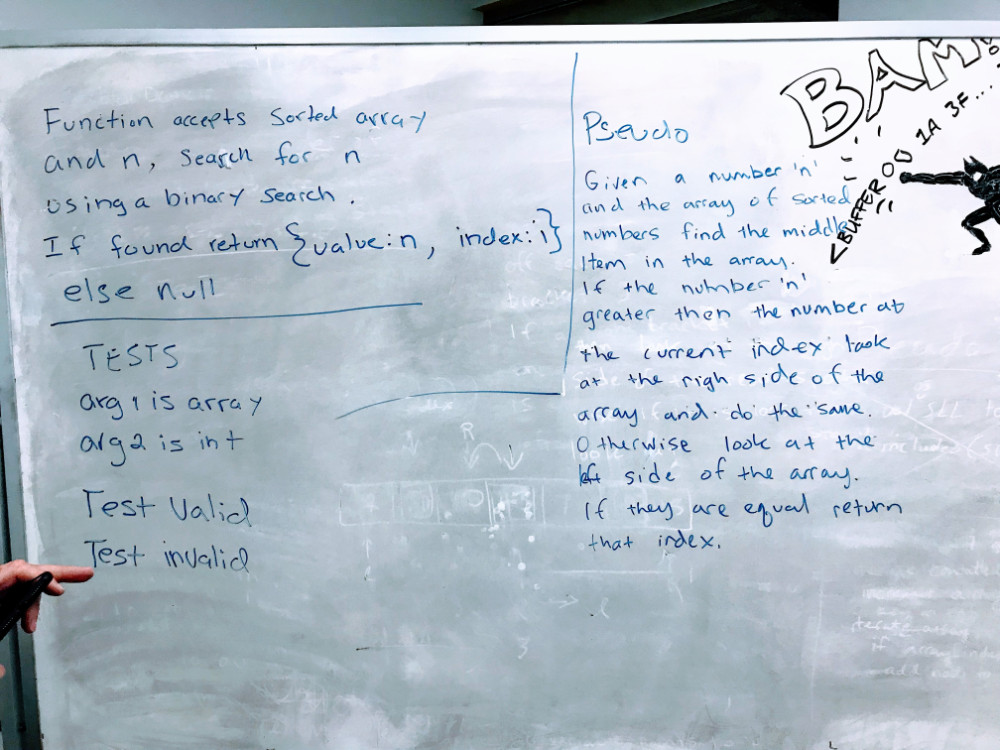 Function accepts Sorted array
and n, Search for n
using a binary Search.
If found return {value:n, index:i}
else null
TESTS
arg 1 is array
arg 2 is int
Test Valid
Test invalid
R
Pseudo
Given a number 'n'
and the array of sorted
numbers find the middle
Item in the array.
If the number 'n'
greater then the number at
the current index look
at the righ side of the
array and do the same.
Otherwise look at the
left side of the array.
If they are equal return
that index.
BAM!
<BUFFER 00 1A 3F...
if array